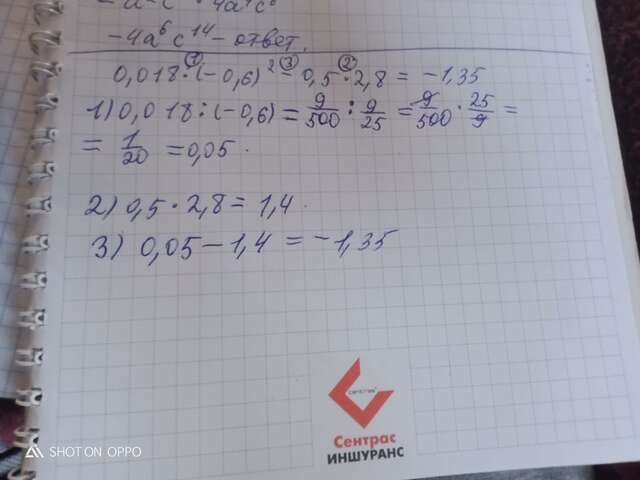 -4a⁶c¹⁴ - ответ.
① ③ ②
0,018 : (-0,6)² - 0,5 · 2,8 = -1,35
1) 0,018 : (-0,6) = 9/500 : 9/25 = 9/500 · 25/9 =
= 1/20 = 0,05.
2) 0,5 · 2,8 = 1,4.
3) 0,05 - 1,4 = -1,35
СЕНТРАС
Сентрас
ИНШУРАНС
SHOT ON OPPO